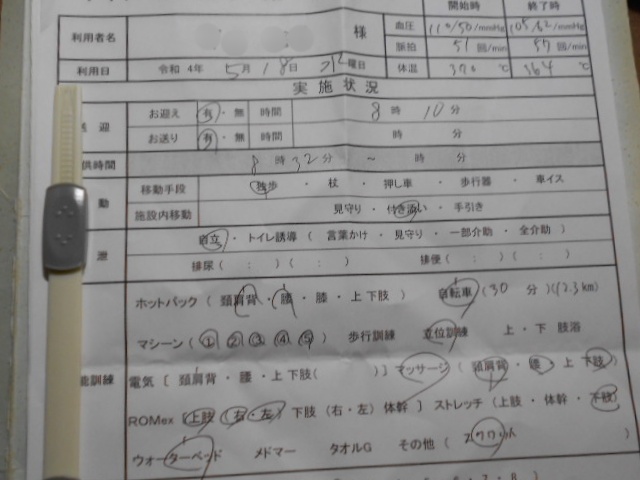 開始時 終了時
利用者名 様 血圧 110/50/mmHg 105/62/mmHg
脈拍 51 回/min 57 回/min
利用日 令和 4年 5月 18日 水曜日 体温 ℃ 364 ℃
実施状況
迎 お迎え 有・無 時間 8 時 10 分
お送り 有・無 時間 時 分
供時間 8 時 32 分 ~ 時 分
動 移動手段 独歩 ・ 杖 ・ 押し車 ・ 歩行器 ・ 車イス
施設内移動 見守り ・ 付き添い ・ 手引き
泄 自立 ・ トイレ誘導 ( 言葉かけ ・ 見守り ・ 一部介助 ・ 全介助 )
排尿 ( : ) ( : ) 排便 ( : ) ( : )
ホットパック ( 頚肩背 ・ 腰 ・ 膝 ・ 上 下肢 ) 自転車 ( 30 分 ) (12.3km)
マシーン ( ① ② ③ ④ ⑤ ) 歩行訓練 立位訓練 上 ・ 下 肢浴
能訓練 電気 [ 頚肩背 ・ 腰 ・ 上 下肢( )] マッサージ ( 頚肩背 ・ 腰 上 下肢 )
ROMex [ 上肢 ( 右 ・ 左 ) 下肢 (右・左) 体幹 ] ストレッチ (上肢 ・ 体幹 ・ 下肢 )
ウォーターベッド メドマー タオルG その他 ( )